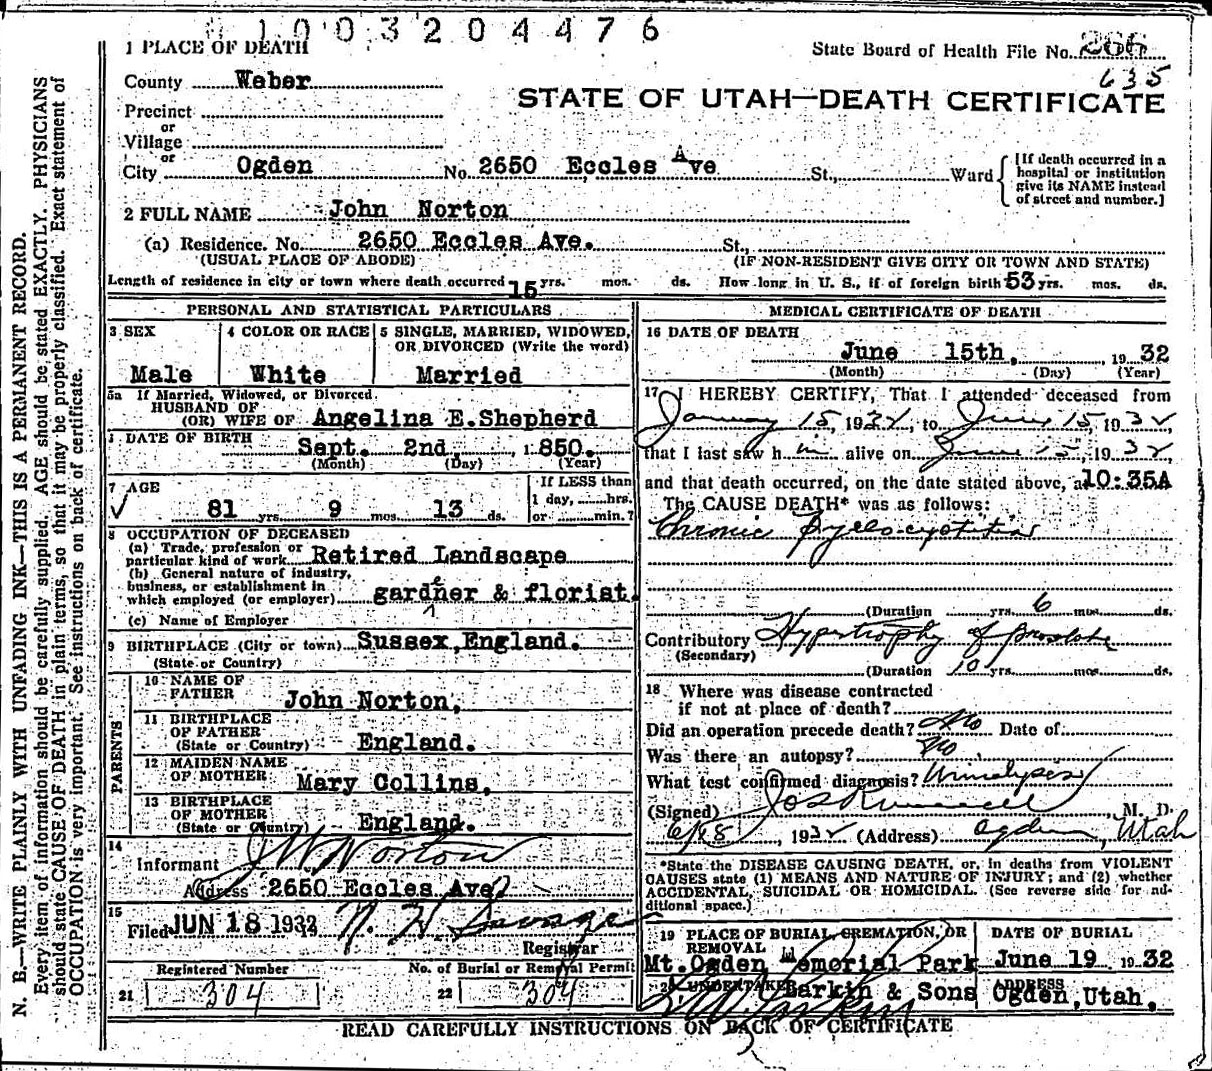 1003204476
1 PLACE OF DEATH
State Board of Health File No. 266
635
County Weber
STATE OF UTAH—DEATH CERTIFICATE
Precinct
or
Village
or
City Ogden No. 2650 Eccles Ave St., Ward
[If death occurred in a
hospital or institution
give its NAME instead
of street and number.]
2 FULL NAME John Norton
(a) Residence. No. 2650 Eccles Ave. St.,
(USUAL PLACE OF ABODE) (IF NON-RESIDENT GIVE CITY OR TOWN AND STATE)
Length of residence in city or town where death occurred 15 yrs. mos. ds. How long in U. S., if of foreign birth 53 yrs. mos. ds.
PERSONAL AND STATISTICAL PARTICULARS
3 SEX
Male
4 COLOR OR RACE
White
5 SINGLE, MARRIED, WIDOWED,
OR DIVORCED (Write the word)
Married
5a If Married, Widowed, or Divorced
HUSBAND OF
(OR) WIFE OF Angelina E.Shepherd
DATE OF BIRTH
Sept. 2nd, 1850.
(Month) (Day) (Year)
7 AGE
81 yrs. 9 mos. 13 ds.
If LESS than
1 day, hrs.
or min.?
8 OCCUPATION OF DECEASED
(a) Trade, profession or
particular kind of work Retired Landscape
(b) General nature of industry,
business, or establishment in
which employed (or employer) gardener & florist.
(c) Name of Employer
9 BIRTHPLACE (City or town) Sussex,England.
(State or Country)
PARENTS
10 NAME OF
FATHER John Norton,
11 BIRTHPLACE
OF FATHER
(State or Country) England.
12 MAIDEN NAME
OF MOTHER Mary Collins,
13 BIRTHPLACE
OF MOTHER
(State or Country) England.
14
Informant J W Norton
Address 2650 Eccles Ave
15
Filed JUN 18 1932 N. H. Savage
Registrar
Registered Number
21 304
No. of Burial or Removal Permit
22 304
MEDICAL CERTIFICATE OF DEATH
16 DATE OF DEATH
June 15th, 1932
(Month) (Day) (Year)
17 I HEREBY CERTIFY, That I attended deceased from
January 15, 1932, to June 15, 1932,
that I last saw him alive on June 15, 1932,
and that death occurred, on the date stated above, at 10:35A
The CAUSE DEATH* was as follows:
Chronic Pyelocystitis
(Duration yrs. 6 mos. ds.
Contributory Hypertrophy of prostate
(Secondary)
(Duration 10 yrs. mos. ds.
18 Where was disease contracted
if not at place of death?
Did an operation precede death? No Date of:
Was there an autopsy? No
What test confirmed diagnosis? Urinalyses
(Signed) M. D.
6/18, 1932 (Address) Ogden, Utah
*State the DISEASE CAUSING DEATH, or, in deaths from VIOLENT
CAUSES state (1) MEANS AND NATURE OF INJURY; and (2) whether
ACCIDENTAL, SUICIDAL OR HOMICIDAL. (See reverse side for ad-
ditional space.)
19 PLACE OF BURIAL, CREMATION, OR
REMOVAL
Mt.Ogden Memorial Park
DATE OF BURIAL
June 19 1932
20 UNDERTAKER Larkin & Sons
ADDRESS
Ogden,Utah.
READ CAREFULLY INSTRUCTIONS ON BACK OF CERTIFICATE
N. B.—WRITE PLAINLY WITH UNFADING INK—THIS IS A PERMANENT RECORD.
Every item of information should be carefully supplied. AGE should be stated EXACTLY. PHYSICIANS
should state CAUSE OF DEATH in plain terms, so that it may be properly classified. Exact statement of
OCCUPATION is very important. See instructions on back of certificate.